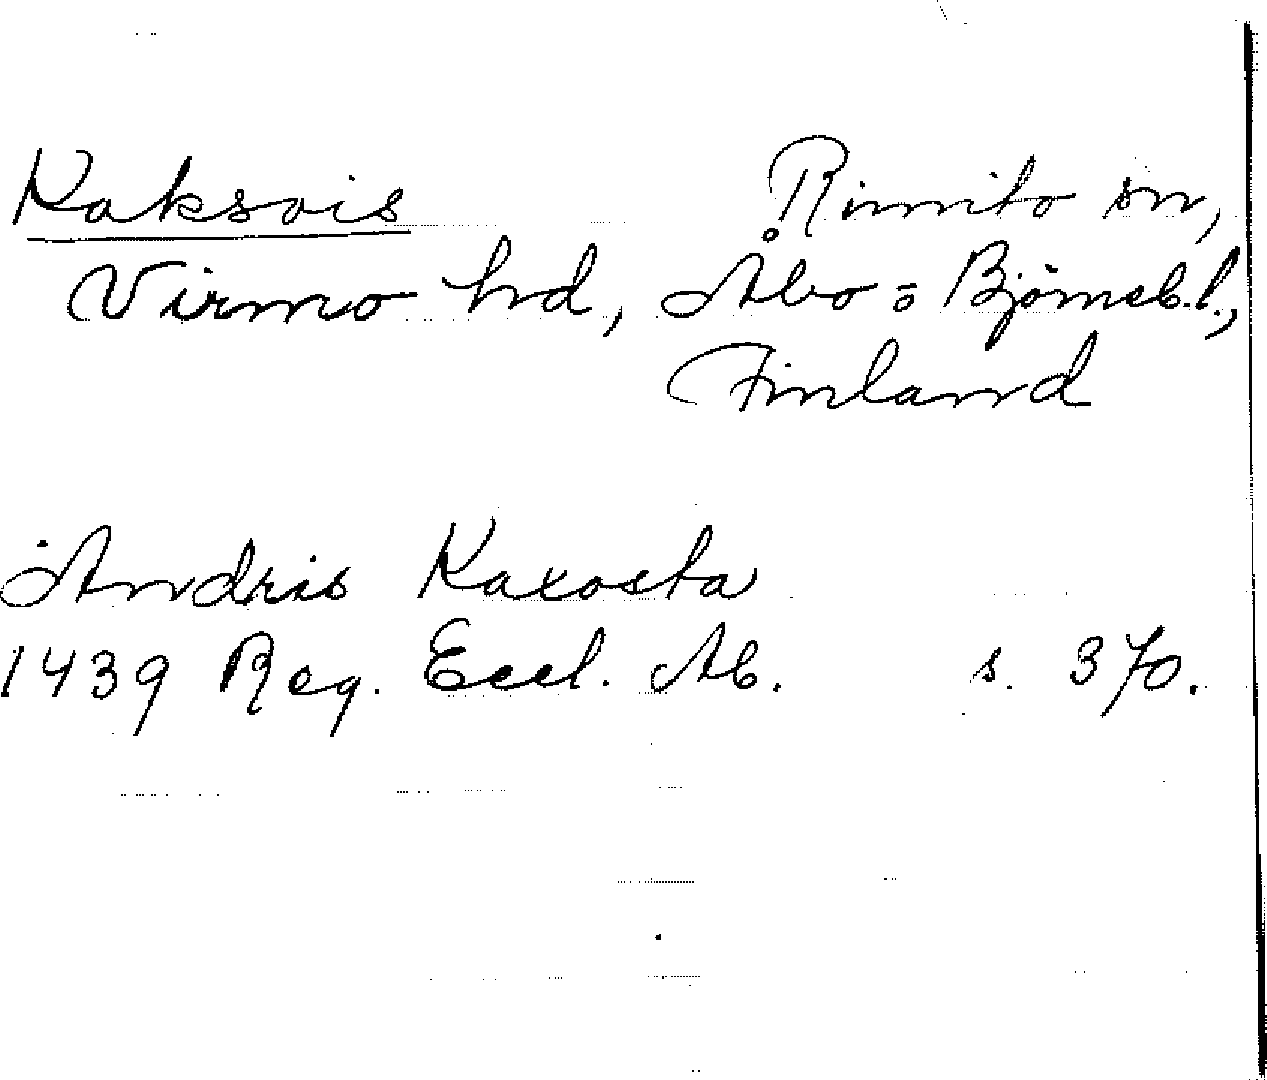 Kaksois Rimito sn,
Virmo hd, Åbo = Björneb.l.,
Finland
Andris Kaxosta
1439 Reg. Eccl. Ab. s. 370.